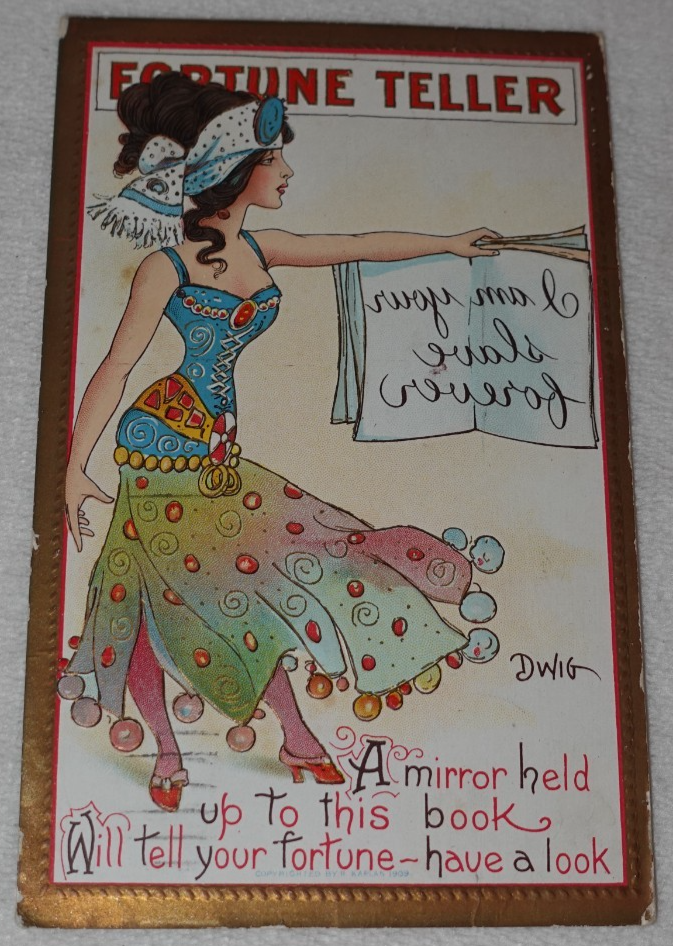 FORTUNE TELLER
I am your
slave
forever
DWIG
A mirror held
up to this book
Will tell your fortune~have a look
COPYRIGHTED BY R. KAPLAN 1909.